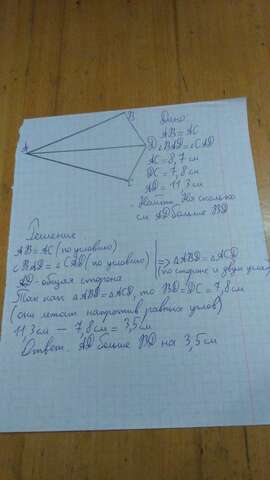 B
Дано:
AB=AC
A
D
∠BAD=∠CAD
AC=8,7см
C
DC=7,8см
AD=11,3см
Найти На сколько
см AD больше BD
Решение
AB=AC (по условию)
∠BAD=∠CAD (по условию)
AD-общая сторона
⇒ △ABD=△ACD
(по стороне и двум углам)
Так как △ABD=△ACD, то BD=DC=7,8см
(они лежат напротив равных углов)
11,3см — 7,8см = 3,5см
Ответ. AD больше BD на 3,5см